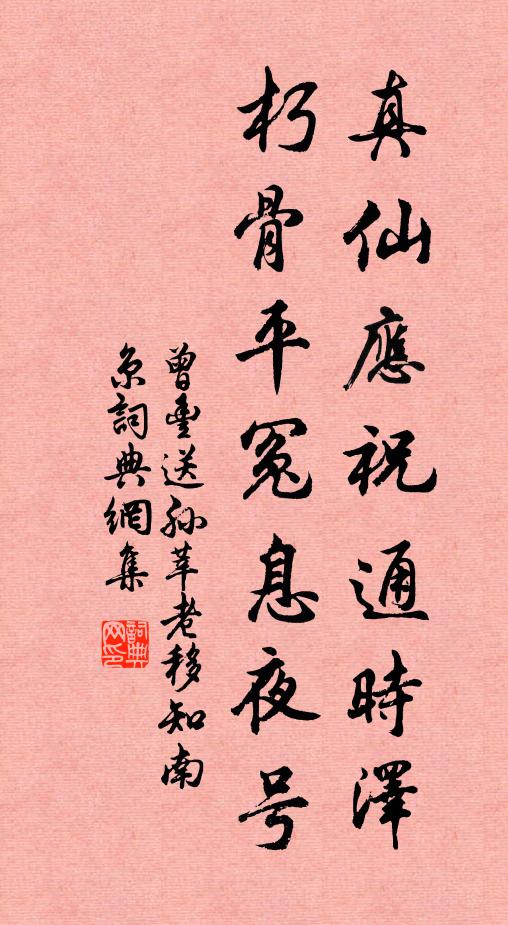 真仙應祝通時澤
朽骨平冤息夜号
曾豊送孫莘老移知南
京詞典網集
詞典网印